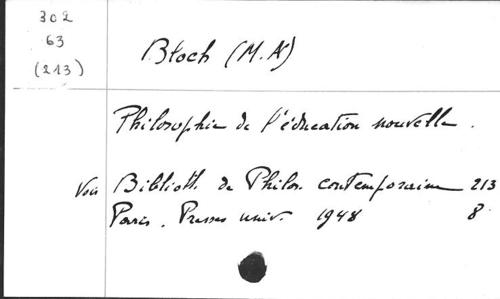 302
63
(213)
Bloch (M. A)
Philosophie de l'éducation nouvelle.
Voir Biblioth. de Philos. contemporaine 213
Paris. Presses univ. 1948 8